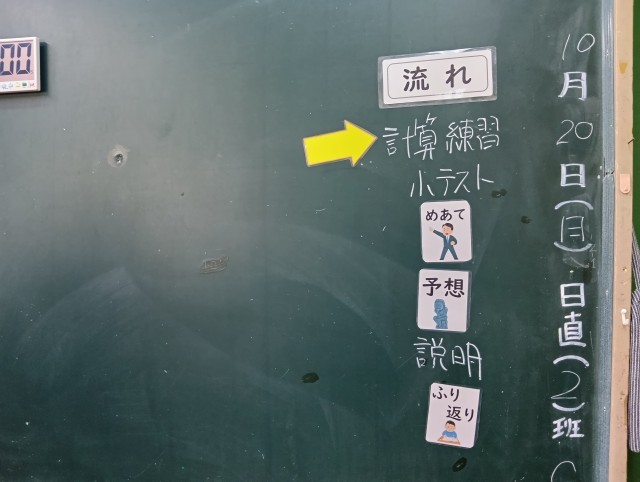 10月20日(月)日直(2)班
流れ
計算練習
小テスト
めあて
予想
説明
ふり
返り
00